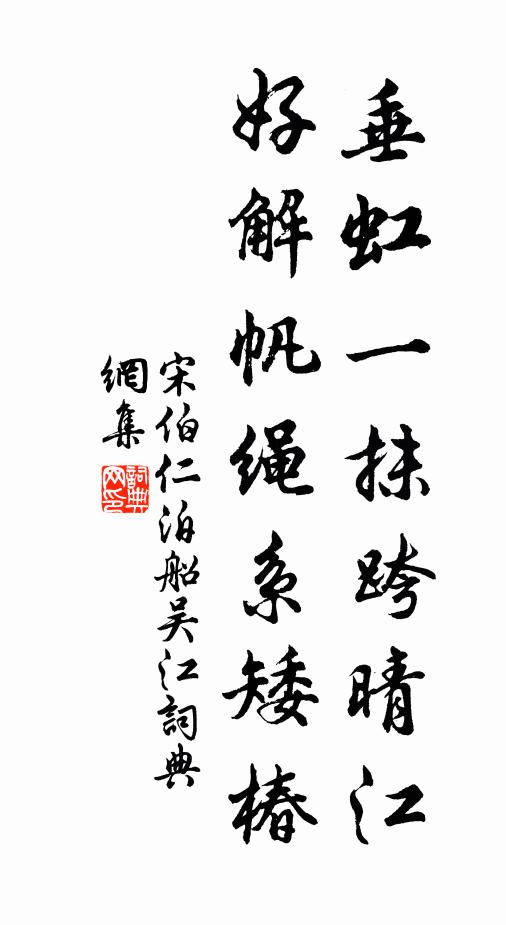 垂虹一抹跨晴江
好解帆绳系矮椿
宋伯仁泊船吴江詞典
網集
詞典
网印